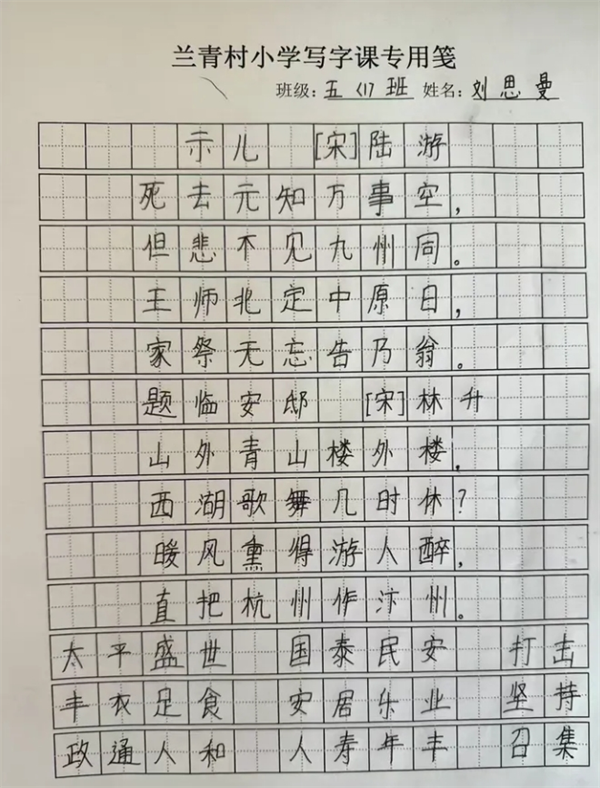 兰青村小学写字课专用笺
班级:五〈1〉班 姓名:刘思曼
示儿 [宋]陆游
死去元知万事空,
但悲不见九州同。
王师北定中原日,
家祭无忘告乃翁。
题临安邸 [宋]林升
山外青山楼外楼,
西湖歌舞几时休?
暖风熏得游人醉,
直把杭州作汴州。
太平盛世 国泰民安 打击
丰衣足食 安居乐业 坚持
政通人和 人寿年丰 召集